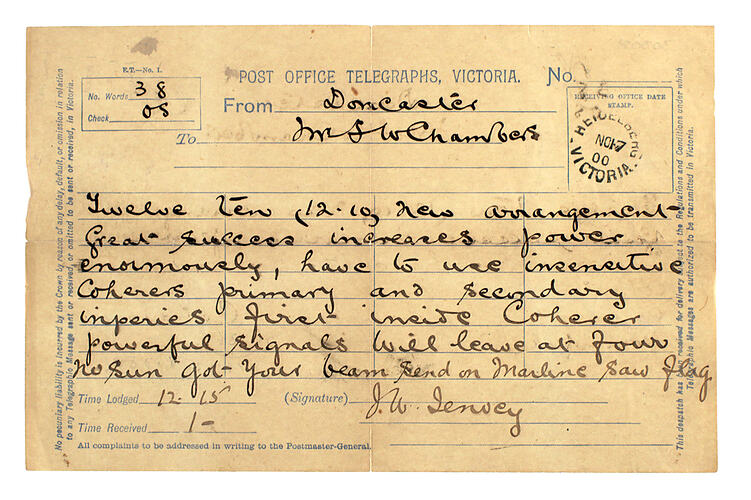 E.T.—No. 1.
POST OFFICE TELEGRAPHS, VICTORIA. No.
No. Words 38
Check 08
From Doncaster
To Mr F W Chambers
RECEIVING OFFICE DATE
STAMP.
HEIDELBERG
NO 17
00
VICTORIA
Twelve Ten (12.10) new arrangement
Great success increases power
enormously, have to use insensitive
Coherers primary and secondary
inperies first inside Coherer
powerful signals will leave at four
no sun got your beam send on Marline saw flag
Time Lodged 12.15 (Signature) J. W. Jenvey
Time Received 1-
All complaints to be addressed in writing to the Postmaster-General.
No pecuniary liability is incurred by the Crown by reason of any delay, default, or omission in relation
to any Telegraphic Message sent or received, or omitted to be sent or received, in Victoria.
This despatch has been received for delivery subject to the Regulations and Conditions under which
Telegraphic Messages are authorized to be transmitted in Victoria.